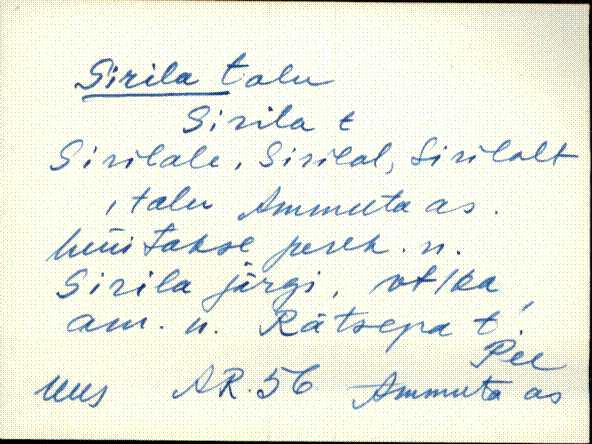 Sirila talu
Sirila t
Sirilale, Sirilal, Sirilalt
, talu Ammuta as.
hüütakse perek. n.
Sirila järgi, vt/ka
am. n. Rätsepa t'.
Pee
uus AR. 56 Ammuta as